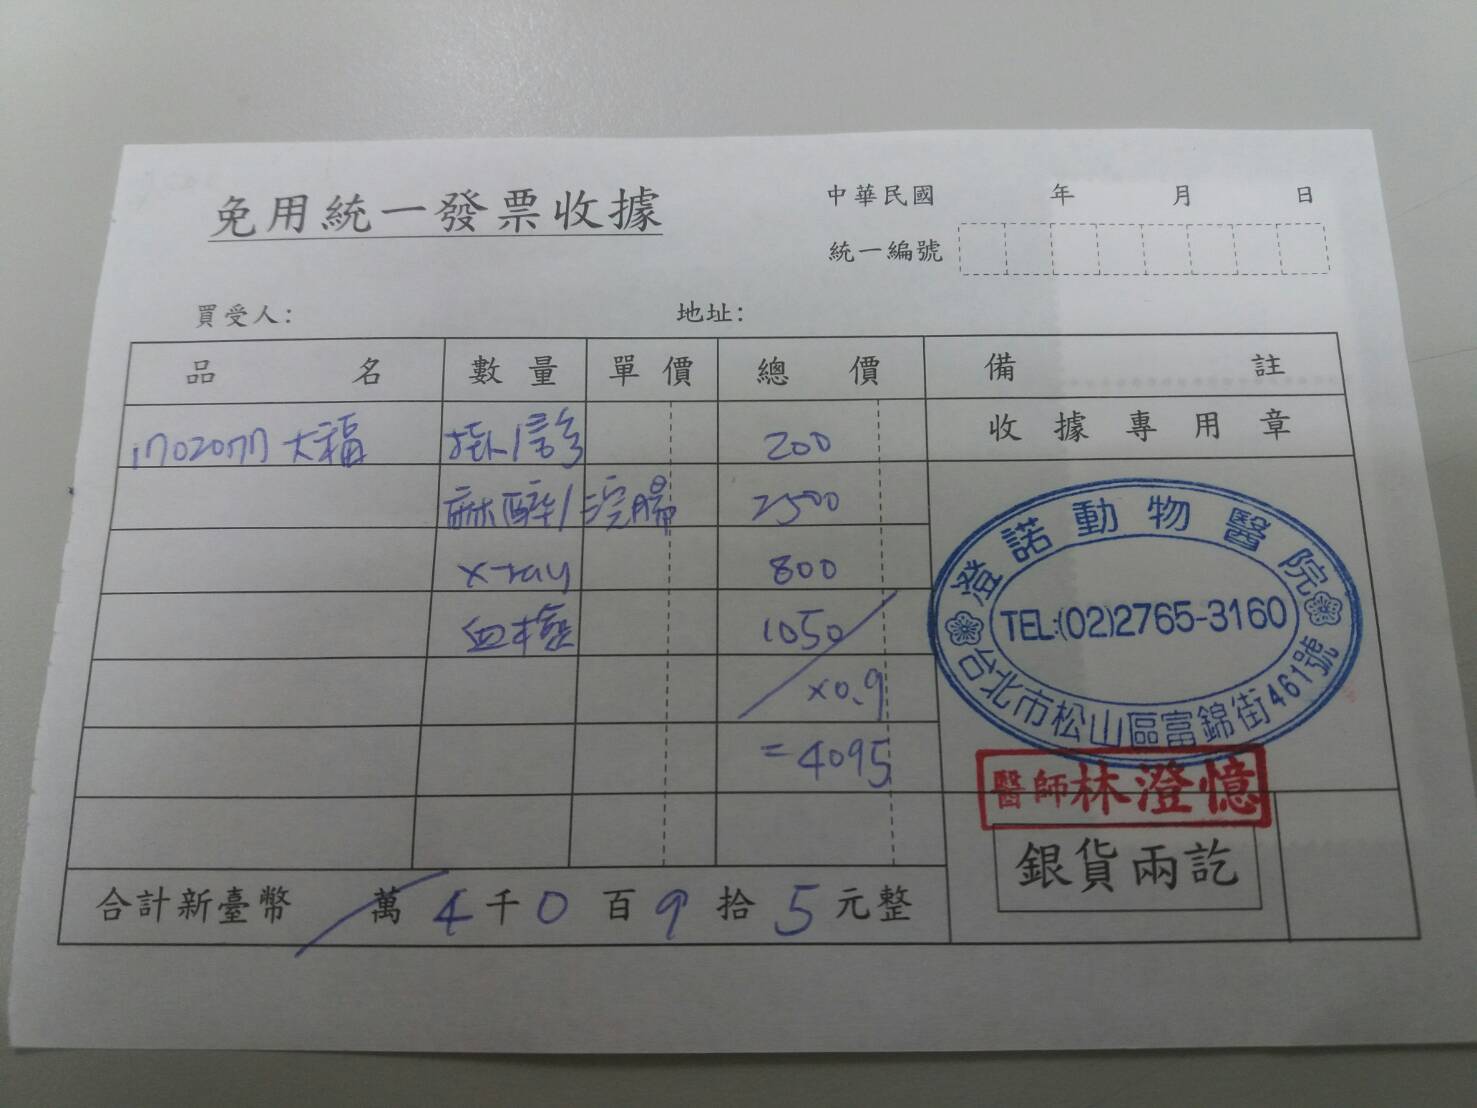 免用統一發票收據
中華民國 年 月 日
統一編號
買受人： 地址：
品名 數量 單價 總價 備註
大福 掛/診 200 收據專用章
麻醉/浣腸 2500
x-ray 800
血檢 1050
x0.9
=4095
澄諾動物醫院
TEL:(02)2765-3160
台北市松山區富錦街461號
醫師林澄憶
銀貨兩訖
合計新臺幣 萬 4 千 0 百 9 拾 5 元整